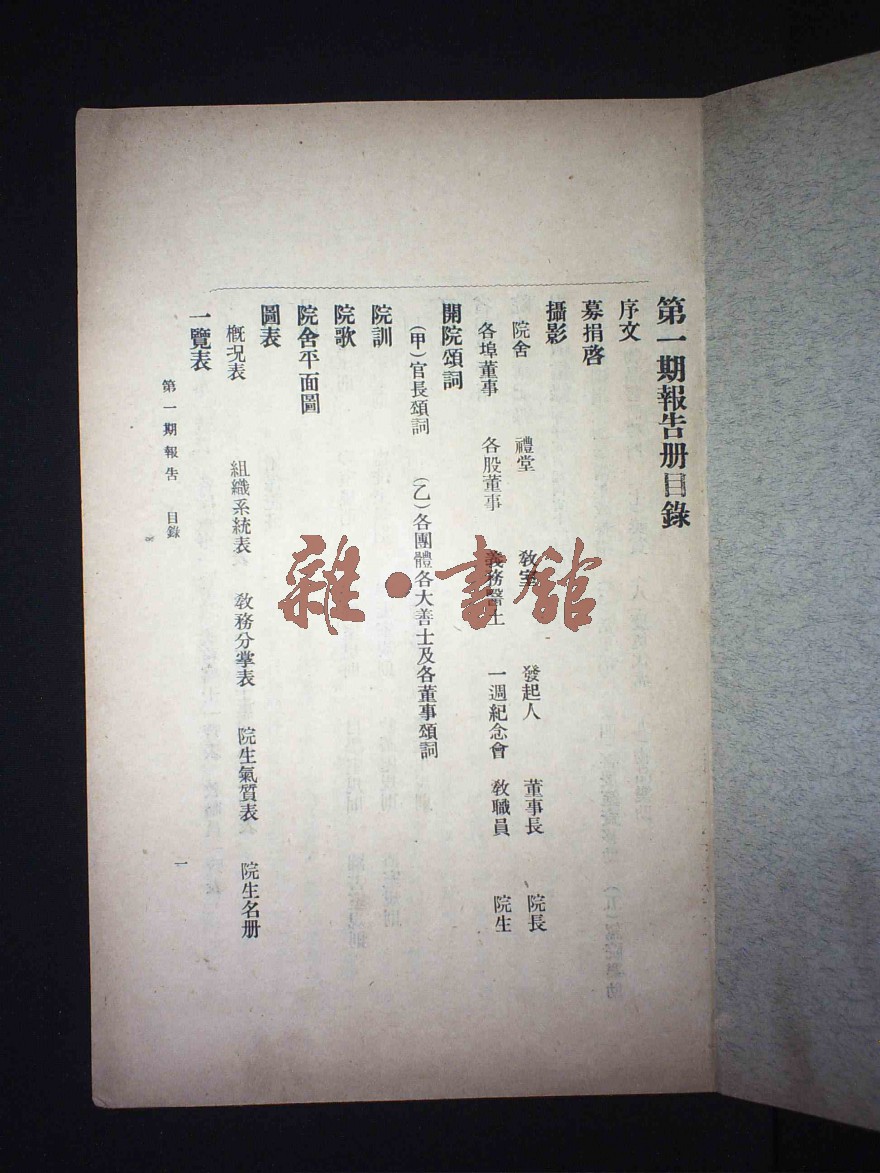 第一期報告册目錄
序文
募捐啓
攝影
院舍 禮堂 教室 發起人 董事長 院長
各埠董事 各股董事 義務醫士 一週紀念會 教職員 院生
開院頌詞
(甲)官長頌詞 (乙)各團體各大善士及各董事頌詞
院訓
院歌
院舍平面圖
圖表
概況表 組織系統表 教務分掌表 院生氣質表 院生名册
一覽表
第一期報告 目錄 一
雜·書館